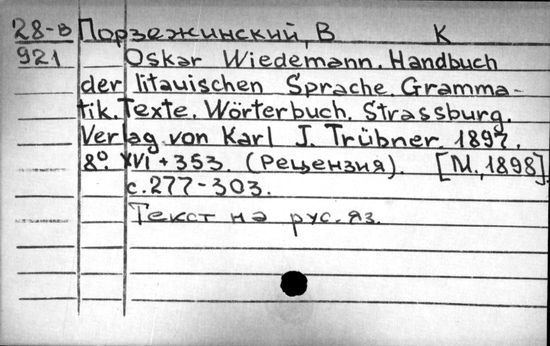 28-в Порзежинский, В К
921 Oskar Wiedemann. Handbuch
der litauischen Sprache. Gramma-
tik. Texte. Wörterbuch. Strassburg.
Verlag von Karl J. Trübner. 1897.
8º. XVI + 353. (Рецензия). [М., 1898].
с. 277-303.
Текст на рус. яз.